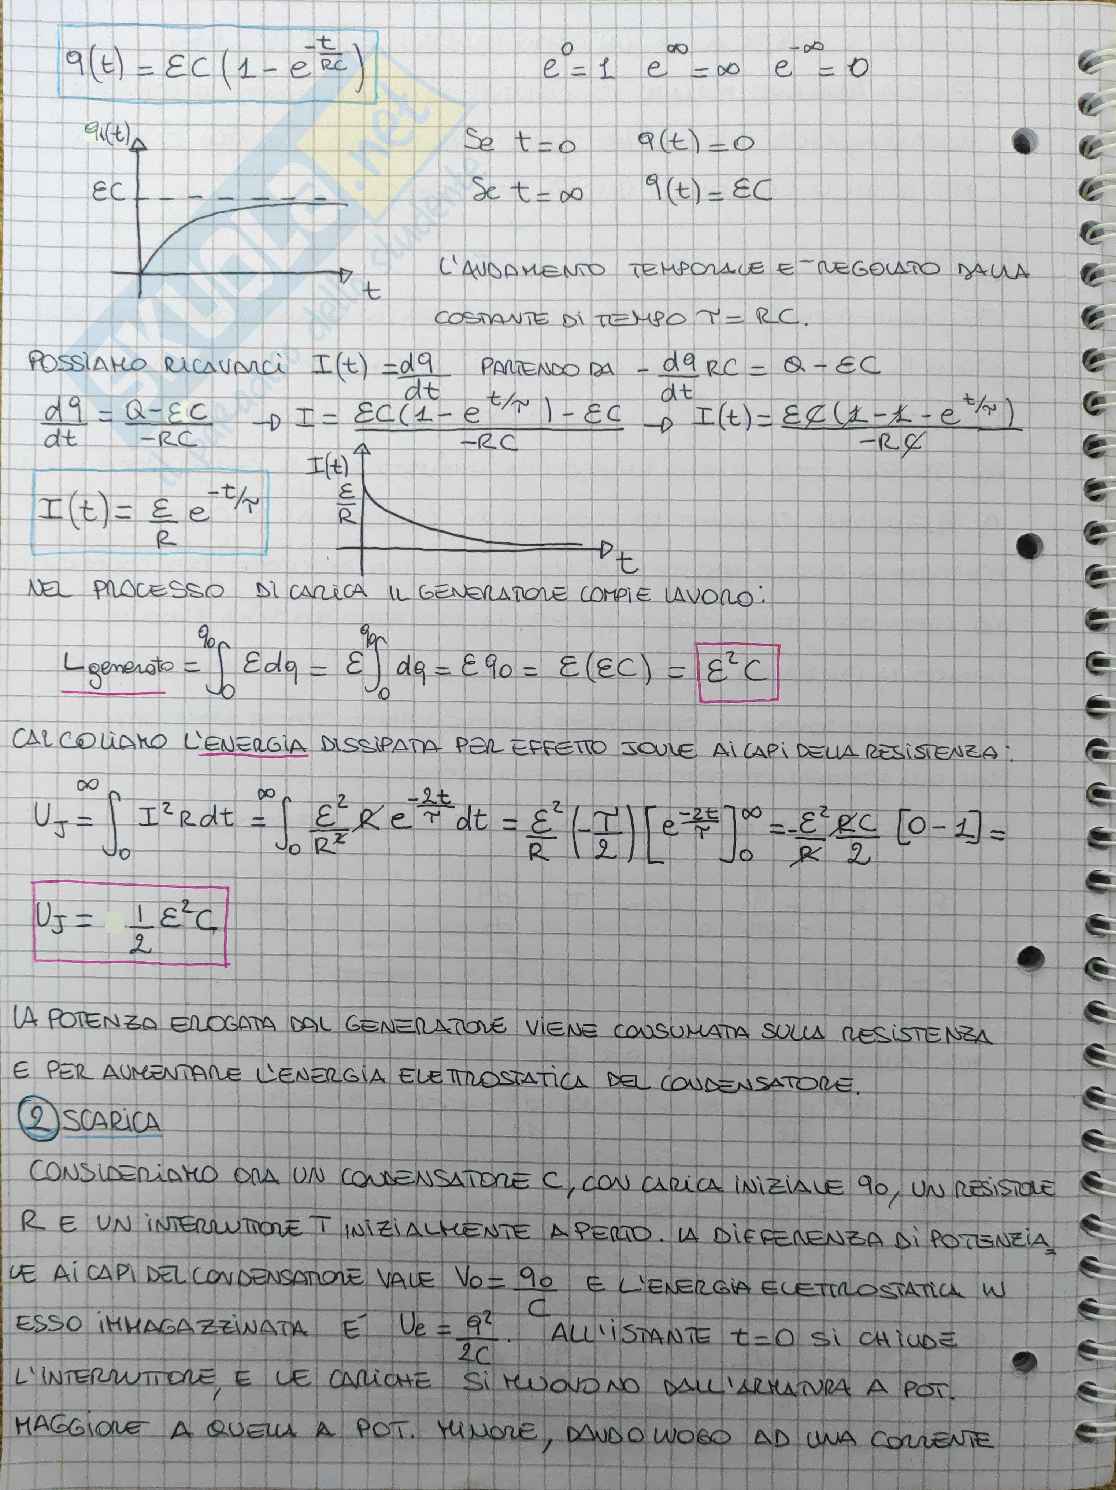 q(t) = εC (1 - e^{-t/RC})    e^0 = 1   e^∞ = ∞   e^{-∞} = 0
q(t)
Se t = 0    q(t) = 0
εC
Se t = ∞    q(t) = εC
t
L'ANDAMENTO TEMPORALE E' REGOLATO DALLA
COSTANTE DI TEMPO τ = RC.
POSSIAMO RICAVARCI I(t) = dq/dt PARTENDO DA - dq/dt RC = Q - εC
dq/dt = (Q - εC)/(-RC) → I = (εC(1 - e^{t/τ}) - εC)/(-RC) → I(t) = (εC(1 - 1 - e^{t/τ}))/(-RC)
I(t) = ε/R e^{-t/τ}
I(t)
ε/R
t
NEL PROCESSO DI CARICA IL GENERATORE COMPIE LAVORO:
Lgenerato = ∫_0^{q0} εdq = ε∫_0^{q0} dq = εq0 = ε(εC) = ε²C
CALCOLIAMO L'ENERGIA DISSIPATA PER EFFETTO JOULE AI CAPI DELLA RESISTENZA:
U_J = ∫_0^∞ I²Rdt = ∫_0^∞ ε²/R² R e^{-2t/τ} dt = ε²/R (-τ/2) [e^{-2t/τ}]_0^∞ = -ε²/R RC/2 [0 - 1] =
U_J = 1/2 ε²C
LA POTENZA EROGATA DAL GENERATORE VIENE CONSUMATA SULLA RESISTENZA
E PER AUMENTARE L'ENERGIA ELETTROSTATICA DEL CONDENSATORE.
2 SCARICA
CONSIDERIAMO ORA UN CONDENSATORE C, CON CARICA INIZIALE q0, UN RESISTORE
R E UN INTERRUTTORE T INIZIALMENTE APERTO. LA DIFFERENZA DI POTENZIA_
LE AI CAPI DEL CONDENSATORE VALE V0 = q0/C E L'ENERGIA ELETTROSTATICA IN
ESSO IMMAGAZZINATA E' Ue = q²/2C. ALL'ISTANTE t=0 SI CHIUDE
L'INTERRUTTORE, E LE CARICHE SI MUOVONO DALL'ARMATURA A POT.
MAGGIORE A QUELLA A POT. MINORE, DANDO LUOGO AD UNA CORRENTE
SKUOLA.net